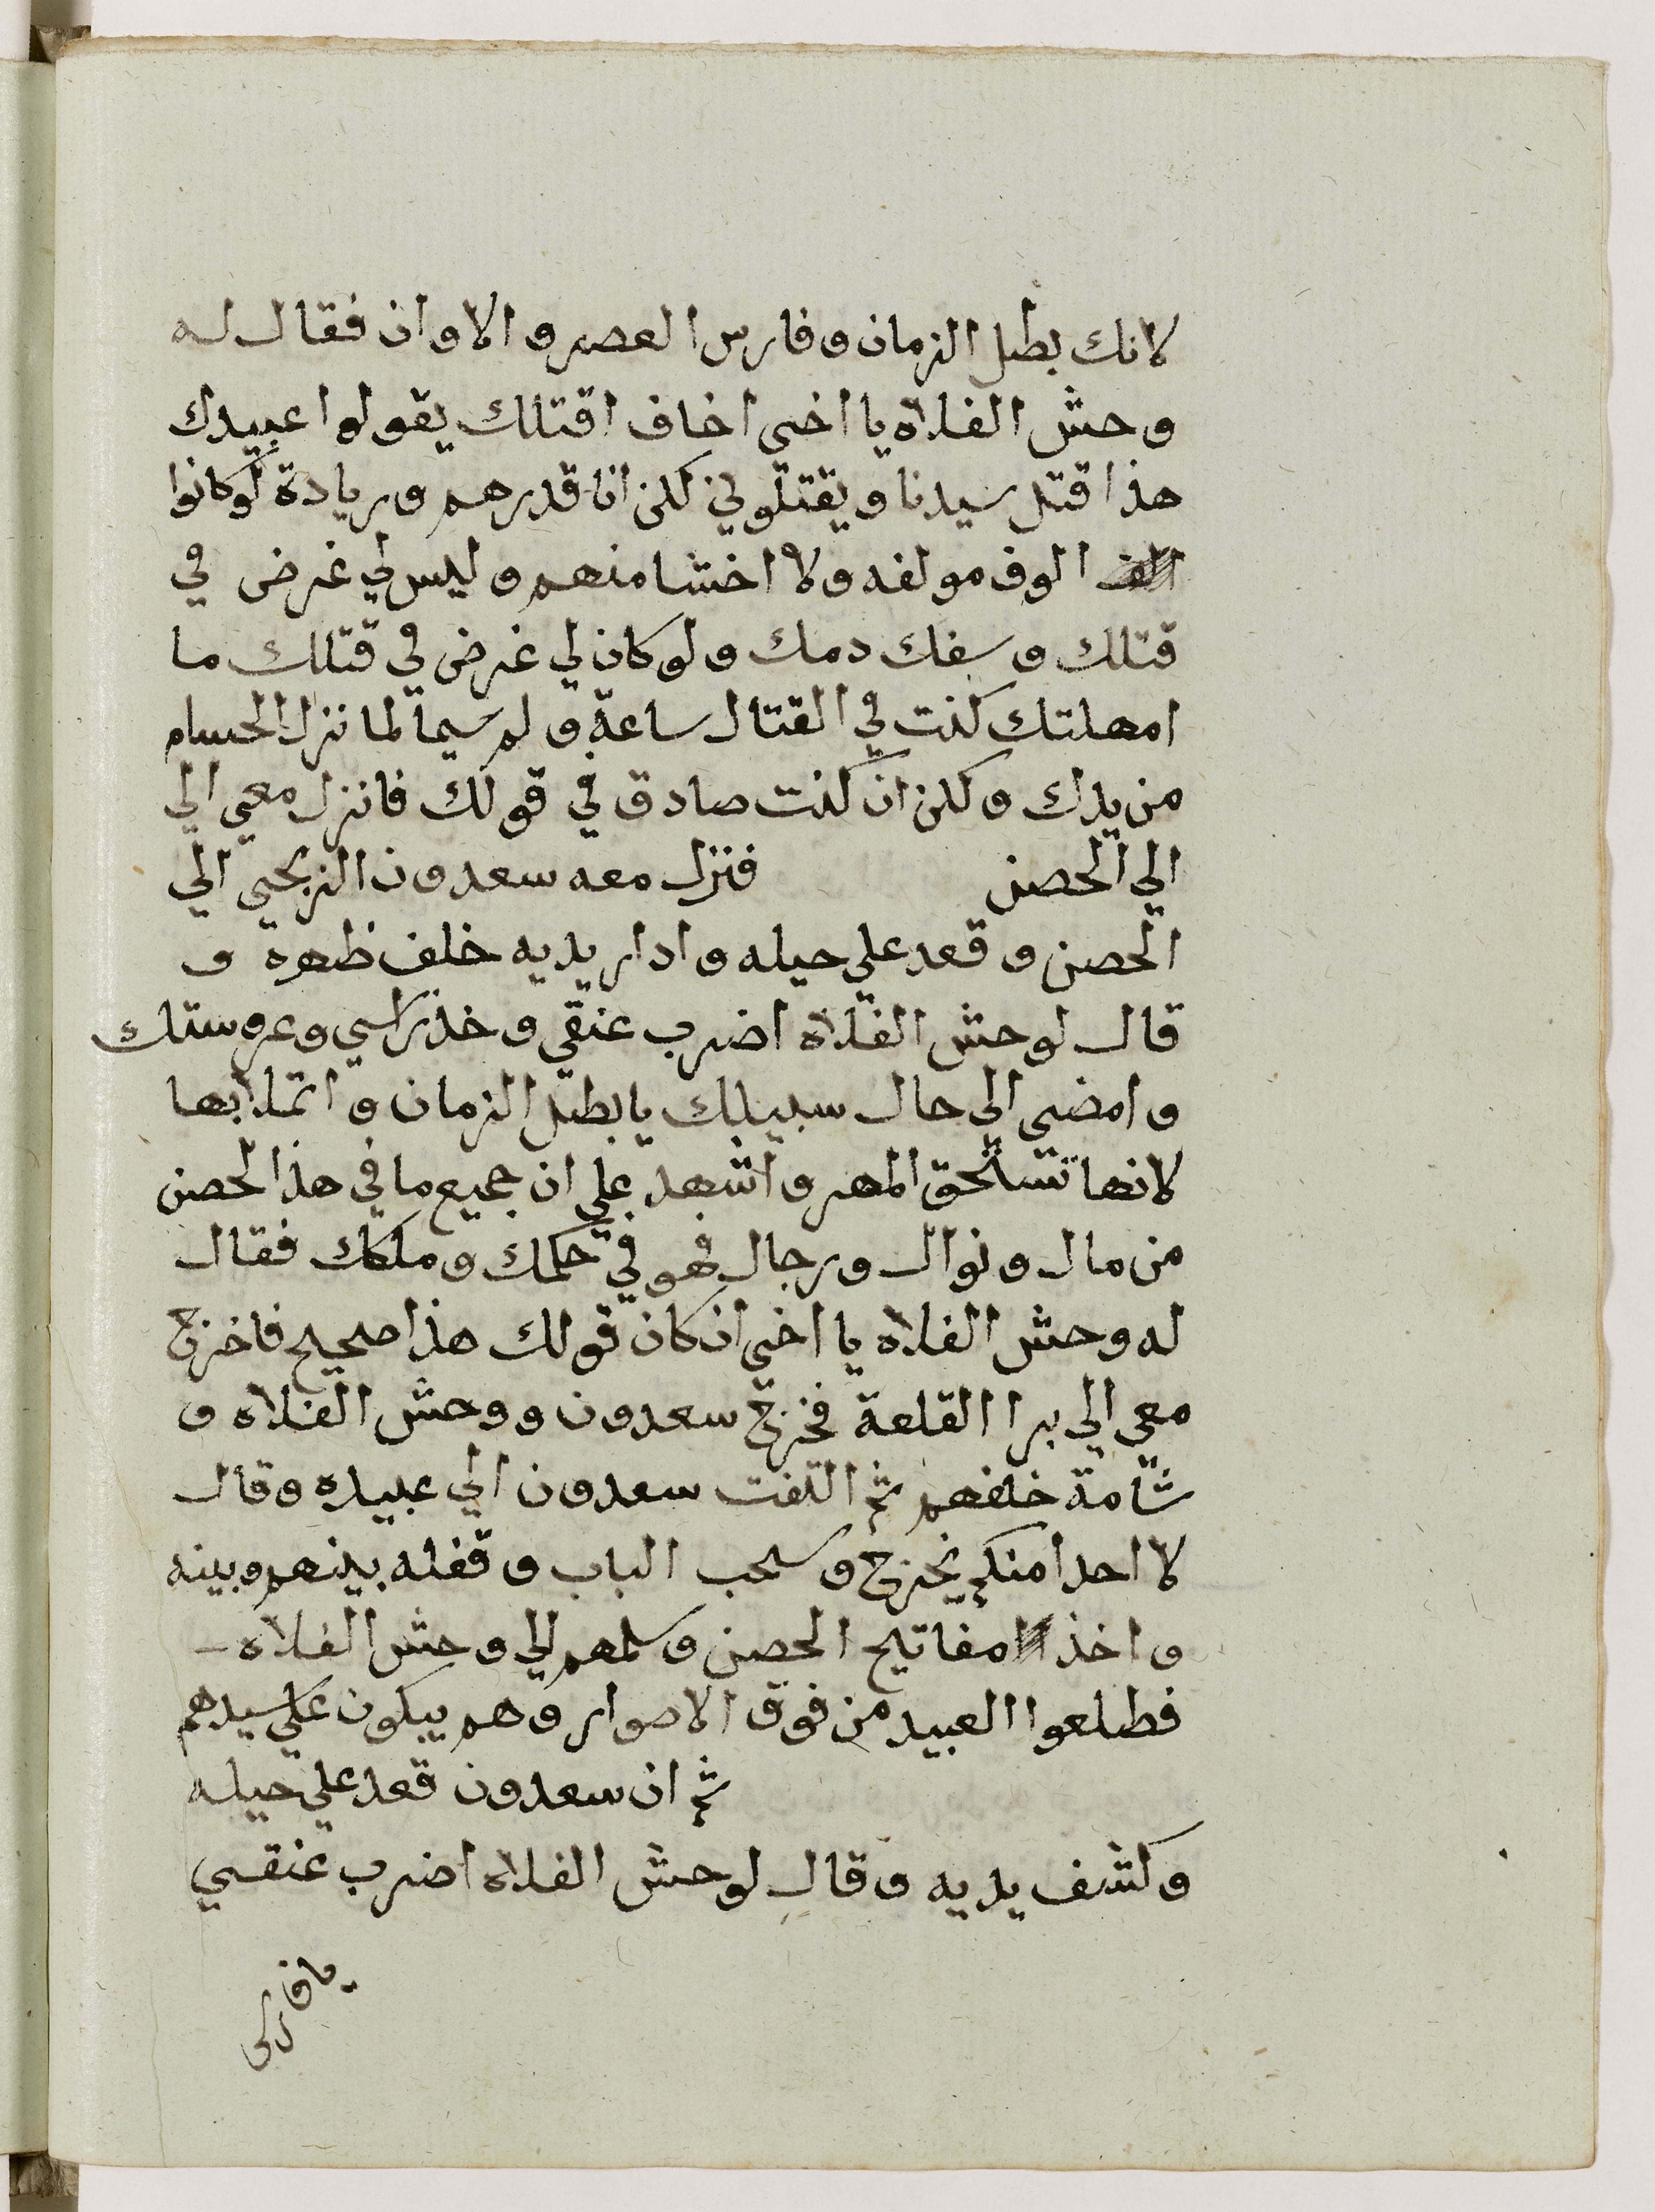 لانك بطل الزمان وفارس العصر والاوان فقال له
وحش الفلاه يا اخى اخاف اقتلك يقولوا عبيدك
هذا قتل سيدنا ويقتلوني لكن انا قدرهم وريادة لوكانوا
الوف مولفه ولا اخشا منهم وليس لي غرض في
قتلك وسفك دمك ولو كان لي غرض في قتلك ما
امهلتك كنت في القتال ساعة ولم سيما لما نزل الحسام
من يدك ولكن ان كنت صادق في قولك فانزل معي الي
الي الحصن فنزل معه سعدون الزنجى الي
الحصن وقعد علي حيله وادار يديه خلف ظهره و
قال لوحش الفلاه اضرب عنقي وخذ راسي وعروستك
وامضى الي حال سبيلك يا بطل الزمان واتملا بها
لانها تستحق المهر واشهد علي ان جميع ما في هذا الحصن
من مال ونوال ورجال فهو في حكمك وملكك فقال
له وحش الفلاه يا اخى ان كان قولك هذا صحيح فاخرج
معي الي برا القلعة فخرج سعدون ووحش الفلاه و
شامة خلفهم ثم التفت سعدون الي عبيده وقال
لا احدا منكم يخرج وسحب الباب وقفله بينهم وبينه
واخذ مفاتيح الحصن وسلمهم الي وحش الفلاه
فطلعوا العبيد من فوق الاصوار وهم يبكون علي سيدهم
ثم ان سعدون قعد علي حيله
وكشف يديه وقال لوحش الفلاه اضرب عنقي